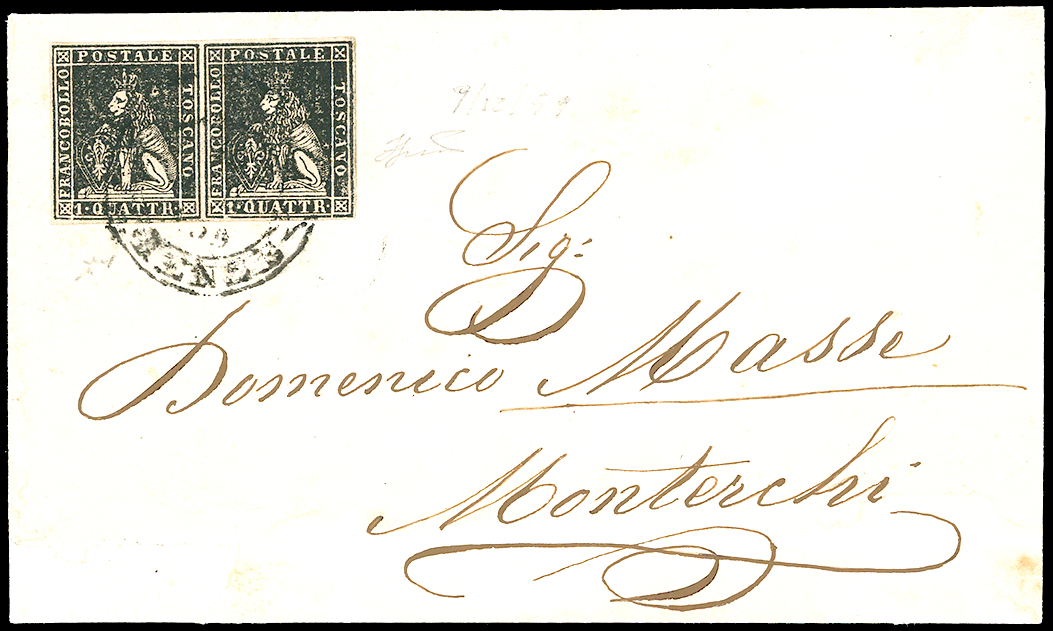 POSTALE
FRANCOBOLLO
TOSCANO
1·QUATTR·
POSTALE
FRANCOBOLLO
TOSCANO
1·QUATTR·
59
9/12/59
Sig:
Domenico Masse
Monterchi